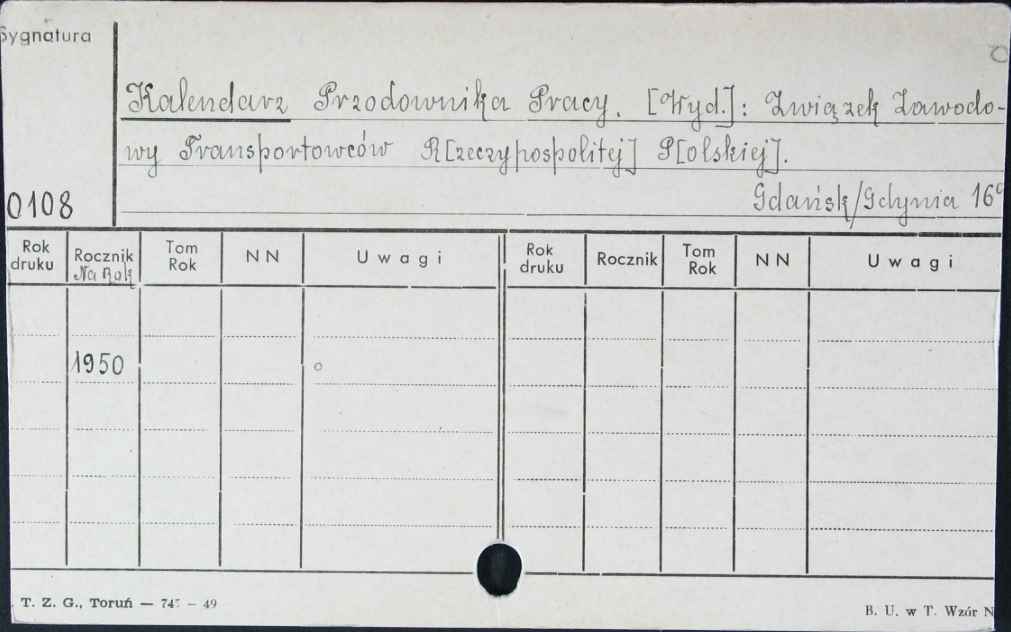 Sygnatura
Kalendarz Przodownika Pracy. [Wyd.]: Związek Zawodo-
wy Transportowców R[zeczypospolitej] P[olskiej].
Gdańsk/Gdynia 16°
0108
Rok druku Rocznik Na Rok Tom Rok NN Uwagi Rok druku Rocznik Tom Rok NN Uwagi
1950
T. Z. G., Toruń — 745 — 49
B. U. w T. Wzór N